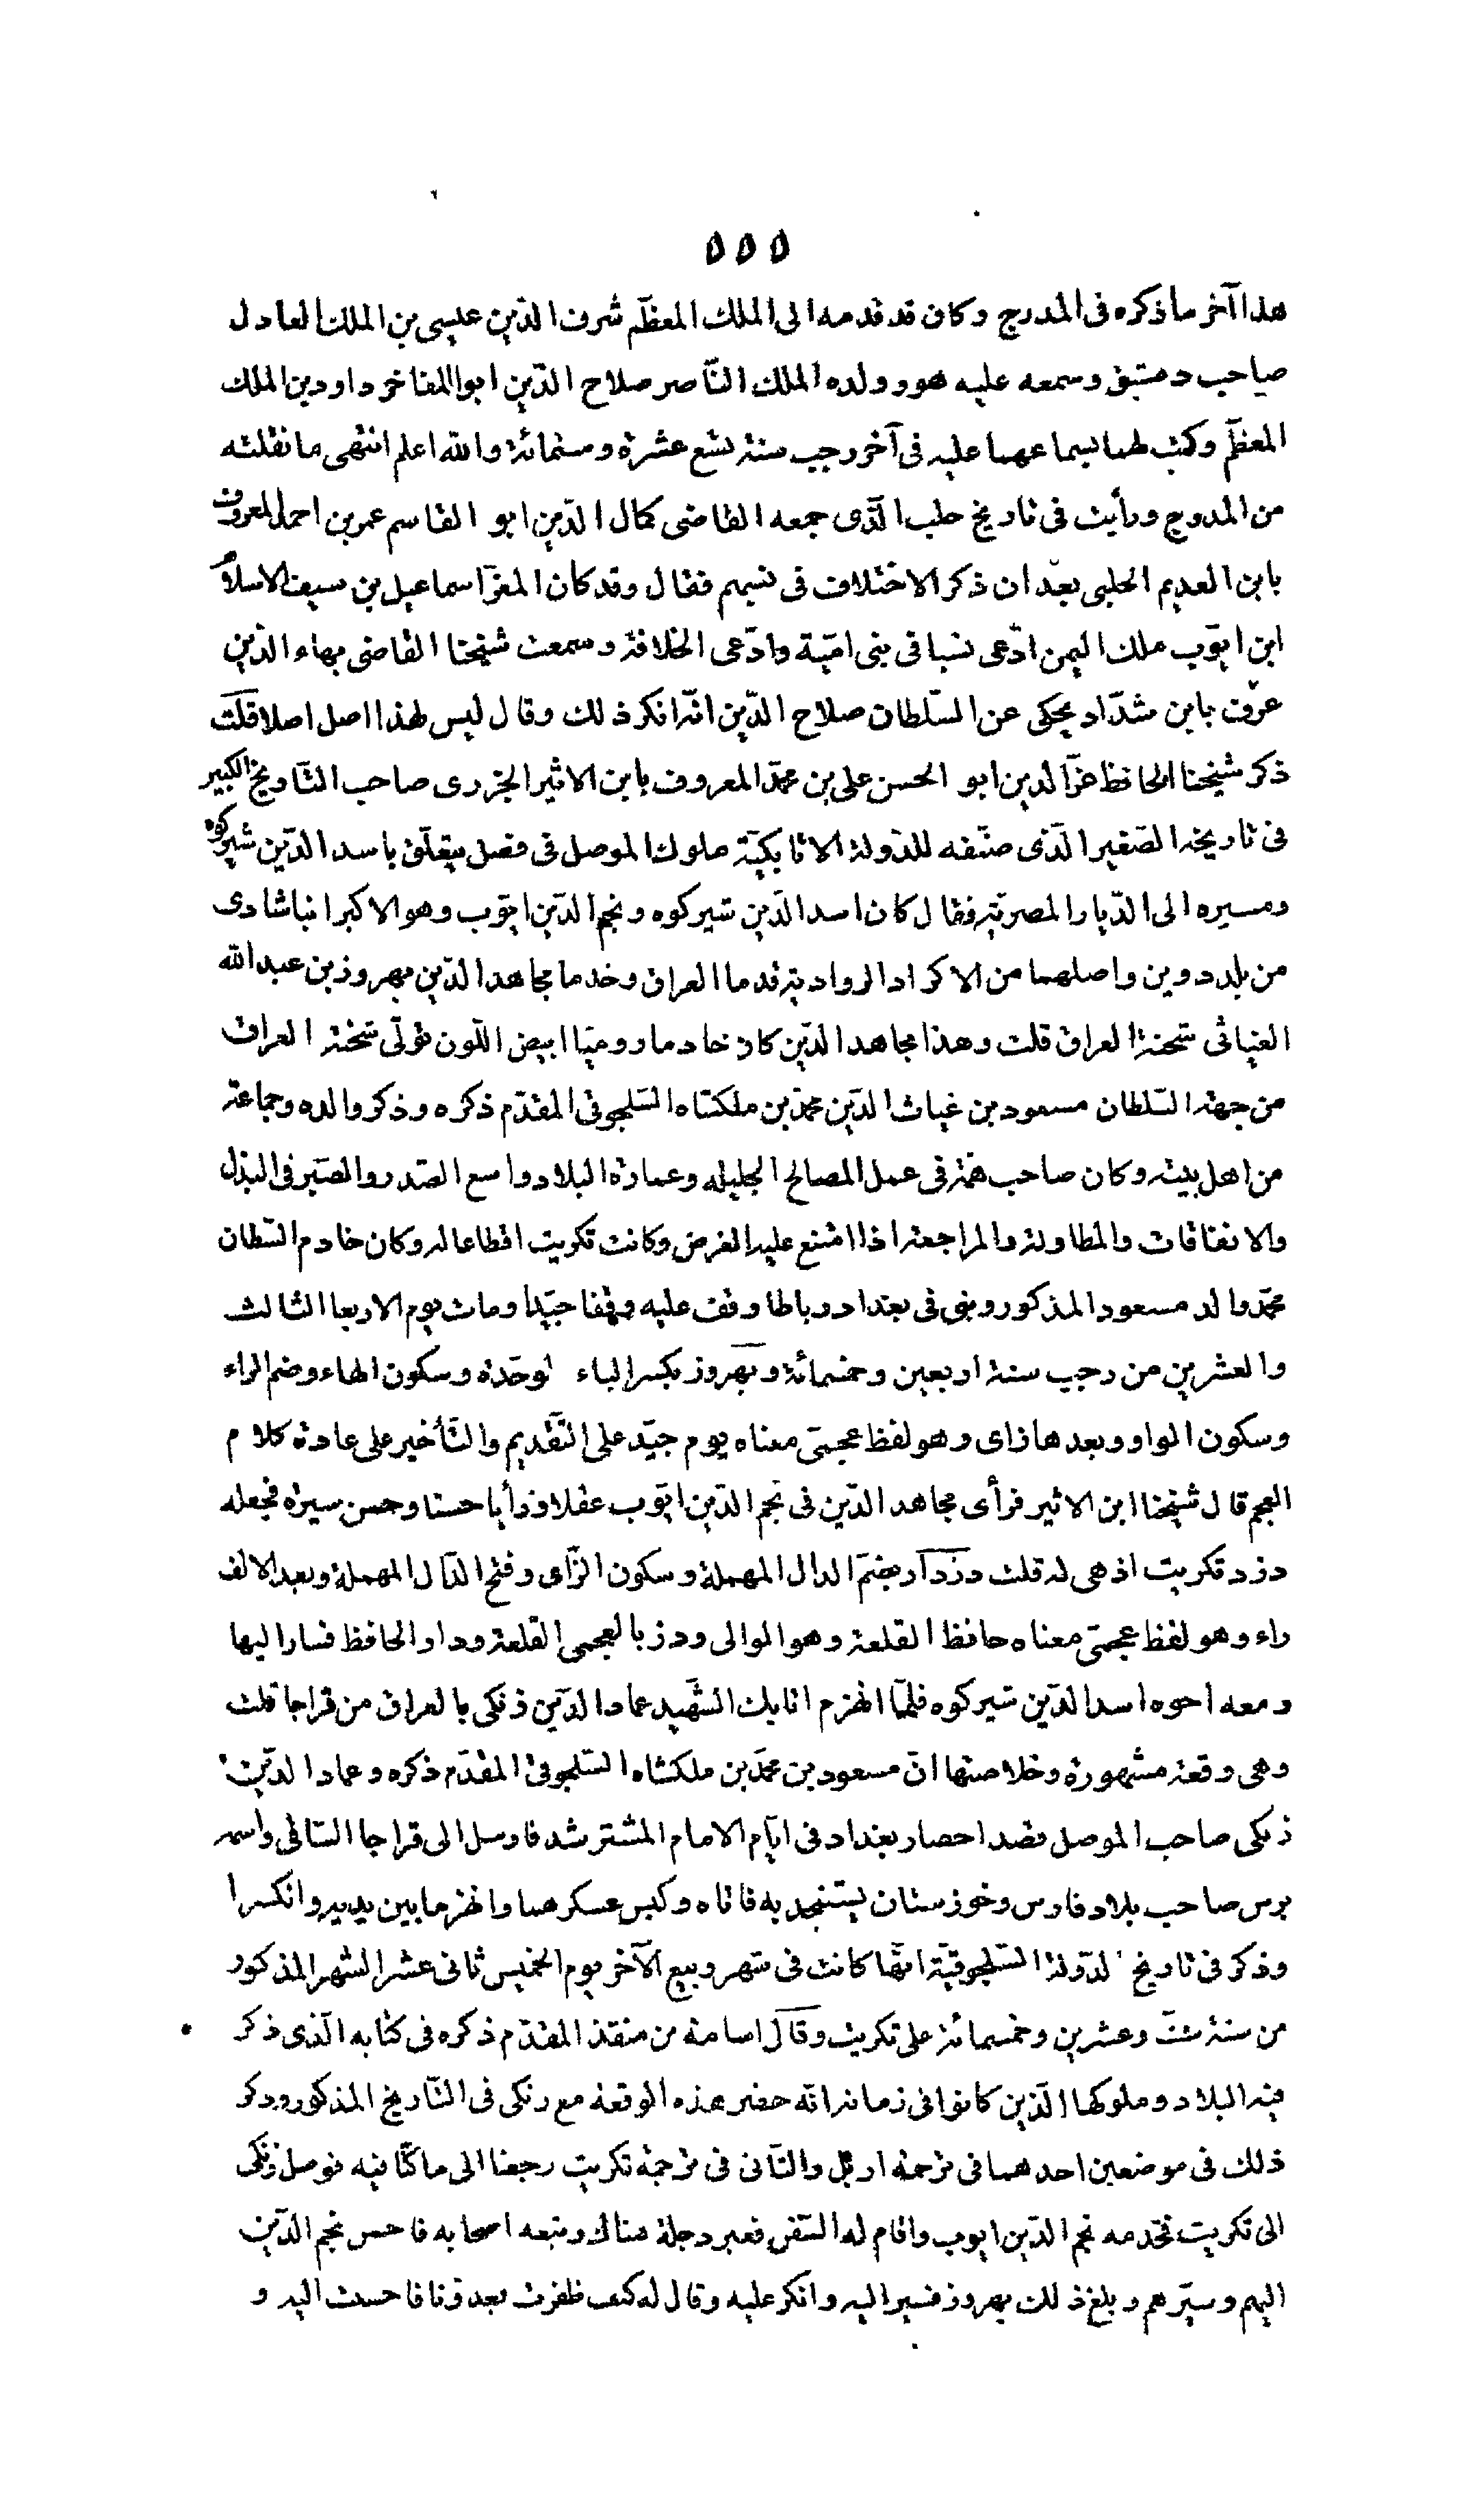 ٥٥٥
هذا آخر ما ذكره فى المدرج وكان قد قدمه الى الملك المعظّم شرف الدّين عيسى بن الملك العادل
صاحب دمشق وسمعه عليه هو وولده الملك النّاصر صلاح الدّين ابو المفاخر داود بن الملك
المعظّم وكتب لهما بسماعهما عليه فى آخر رجب سنة تسع عشرة وستمائة والله اعلم انتهى ما نقلته
من المدرج ورأيت فى تاريخ حلب الّذى جمعه القاضى كمال الدّين ابو القاسم عمر بن احمد المعروف
بابن العديم الحلبى بعد ان ذكر الاختلاف فى نسبهم فقال وقد كان المعزّ اسماعيل بن سيف الاسلام
ابن ايّوب ملك اليمن ادّعى نسبا فى بنى اميّة وادّعى الخلافة وسمعت شيخنا القاضى بهاء الدّين
عرف بابن شدّاد يحكى عن السّلطان صلاح الدّين انّه انكر ذلك وقال ليس لهذا اصل اصلا قلت
ذكر شيخنا الحافظ عزّ الدين ابو الحسن على بن محمّد المعروف بابن الاثير الجزرى صاحب التّاريخ الكبير
فى تاريخه الصّغير الّذى صنّفه للدّولة الاتابكيّة ملوك الموصل فى فصل يتعلّق باسد الدّين شيركوه
ومسيره الى الدّيار المصريّة فقال كان اسد الدّين شيركوه ونجم الدّين ايّوب وهو الاكبر ابنا شادى
من بلد دوين واصلهما من الاكراد الروادية قدما العراق وخدما مجاهد الدّين بهروز بن عبد الله
الغياثى شحنة العراق قلت وهذا مجاهد الدّين كان خادما روميّا ابيض اللّون تولّى شحنة العراق
من جهة السّلطان مسعود بن غياث الدّين محمّد بن ملكشاه السّلجوقى المقدّم ذكره وذكر والده وجماعة
من اهل بيته وكان صاحب همّة فى عمل المصالح الجليله وعمارة البلاد واسع الصّدر والصّبر فى البذل
والانفاقات والمطاولة والمراجعة اذا امتنع عليه الغرض وكانت تكريت اقطاعا له وكان خادم السّلطان
محمّد والد مسعود المذكور وبنى فى بغداد رباطا وقف عليه وقفا جيّدا ومات يوم الاربعا الثالث
والعشرين من رجب سنة اربعين وخمسمائة وبهروز بكسر الباء لوحّدة وسكون الهاء وضم الراء
وسكون الواو وبعدها زاى وهو لفظ عجمىّ معناه يوم جيّد على التّقديم والتّأخير على عادة كلام
العجم قال شيخنا ابن الاثير فرأى مجاهد الدّين فى نجم الدّين ايّوب عقلا ورأيا حسنا وحسن سيرة فجعله
دزد تكريت اذ هى له قلت دزدار بضمّ الدال المهملة وسكون الزّاى وفتح الدّال المهملة وبعد الالف
راء وهو لفظ عجمىّ معناه حافظ القلعة وهو الوالى ودز بالعجمى القلعة ودار الحافظ فسارا اليها
ومعه اخوه اسد الدّين شيركوه فلمّا انهزم اتابك الشّهيد عماد الدّين زنكى بالعراق من قراجا قلت
وهى وقعة مشهورة وخلاصتها انّ مسعود بن محمّد بن ملكشاه السّلجوقىّ المقدّم ذكره وعماد الدّين
زنكى صاحب الموصل قصدا حصار بغداد فى ايّام الامام المسترشد فارسل الى قراجا السّاقى واسمه
برس صاحب بلاد فارس وخوزستان يستنجد به فاتاه وكبس عسكرهما وانهزما بين يديه وانكسرا
وذكر فى تاريخ لدّولة السّلجوقيّة انّها كانت فى شهر ربيع الآخر يوم الخميس ثانى عشر الشّهر المذكور
من سنة ستّ وعشرين وخمسمائة على تكريت وقال اسامة من منقذ المقدّم ذكره فى كتابه الّذى ذكر
فيه البلاد وملوكها الّذين كانوا فى زمانه انّه حضر هذه الوقعة مع زنكى فى التّاريخ المذكور وذكر
ذلك فى موضعين احدهما فى ترجمة اربل والثّانى فى ترجمة تكريت رجعنا الى ما كنّا فيه فوصل زنكى
الى تكريت فخدمه نجم الدّين ايوب واقام له السّفن فعبر دجلة هناك وتبعه اصحابه فاحسن نجم الدّين
اليهم وسيّرهم وبلغ ذلك بهروز فسير اليه وانكر عليه وقال له كيف ظفرت بعدونا فاحسنت اليه و